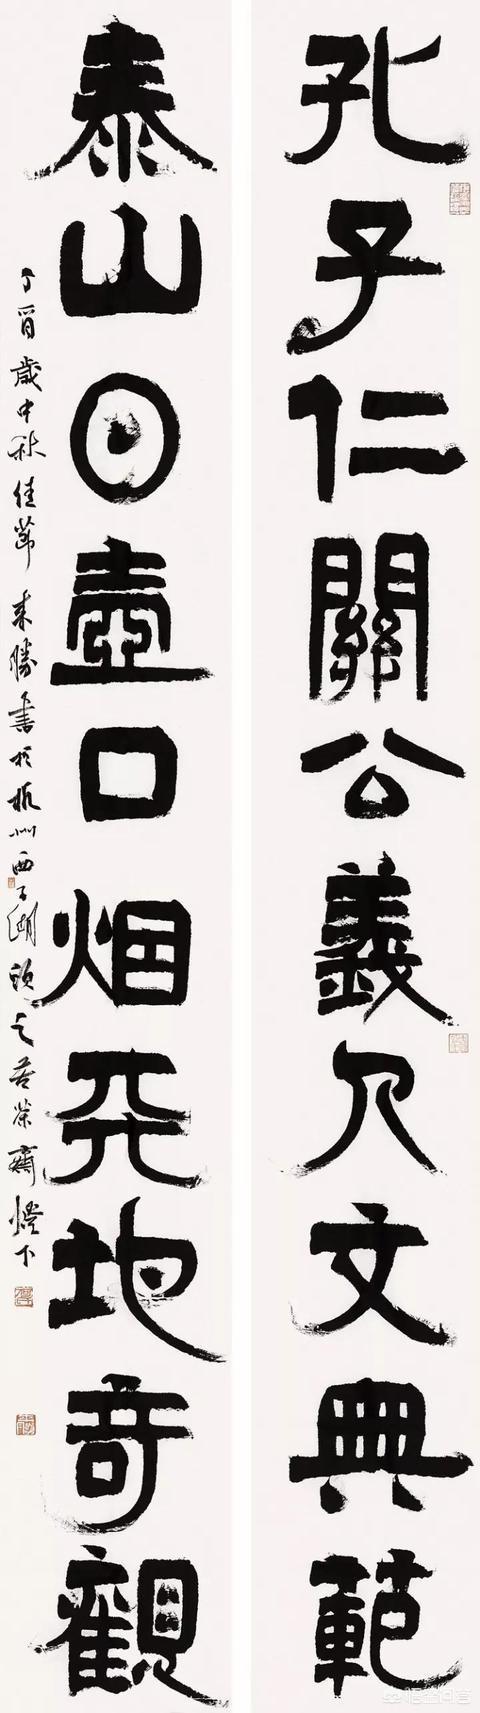 孔子仁關公義人文典範
泰山日壺口烟天地奇觀
丁酉歲中秋佳節來勝書於杭州西子湖頭之若榮齋燈下